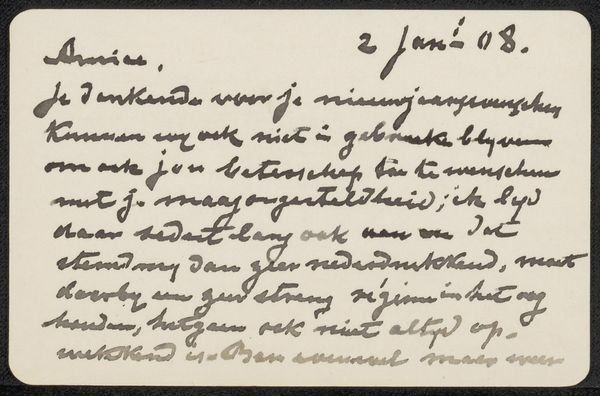 2 Jan: 08.
Amice,
Je dankende voor je nieuwjaarswenschen
kunnen wy ook niet in gebreke blyven
om ook jou beterschap toe te wenschen
met je maagongesteldheid; ik lyd
daar sedert lang ook aan en dat
stemt my dan zeer nederdrukkend, moet
daarby een zeer streng régime in het oog
houden, hetgeen ook niet altyd op-
wekkend is. Ben evenwel maar weer